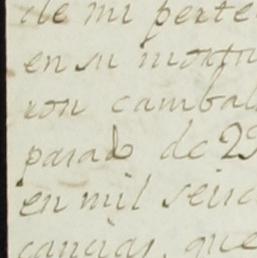 de mi perte
en su monto
ron cambal
parado de 29
en mil seisc
cancias, que